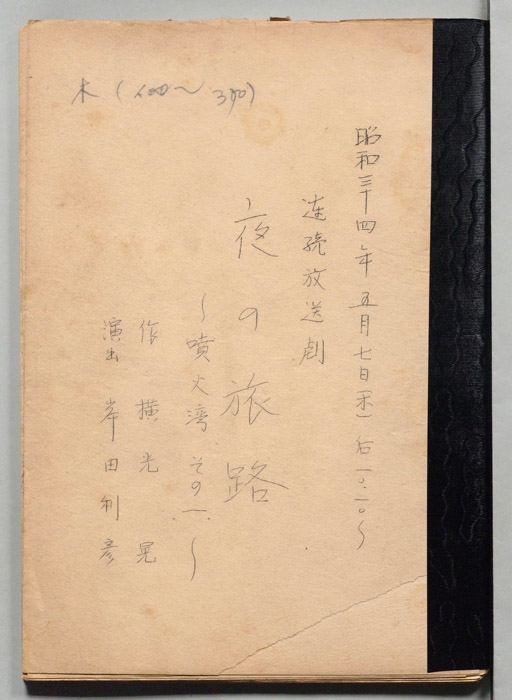 昭和三十四年五月七日(木)后一〇・一〇〜
連続放送劇
夜の旅路
〜噴火湾その一〜
作 横光晃
演出 岸田利彦
木(